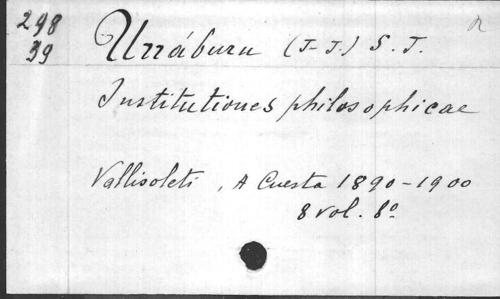 298
39
Urráburu (J-J.) S. J.
Institutiones philosophicae
Vallisoleti, A Cuesta 1890-1900
8 vol. 8º